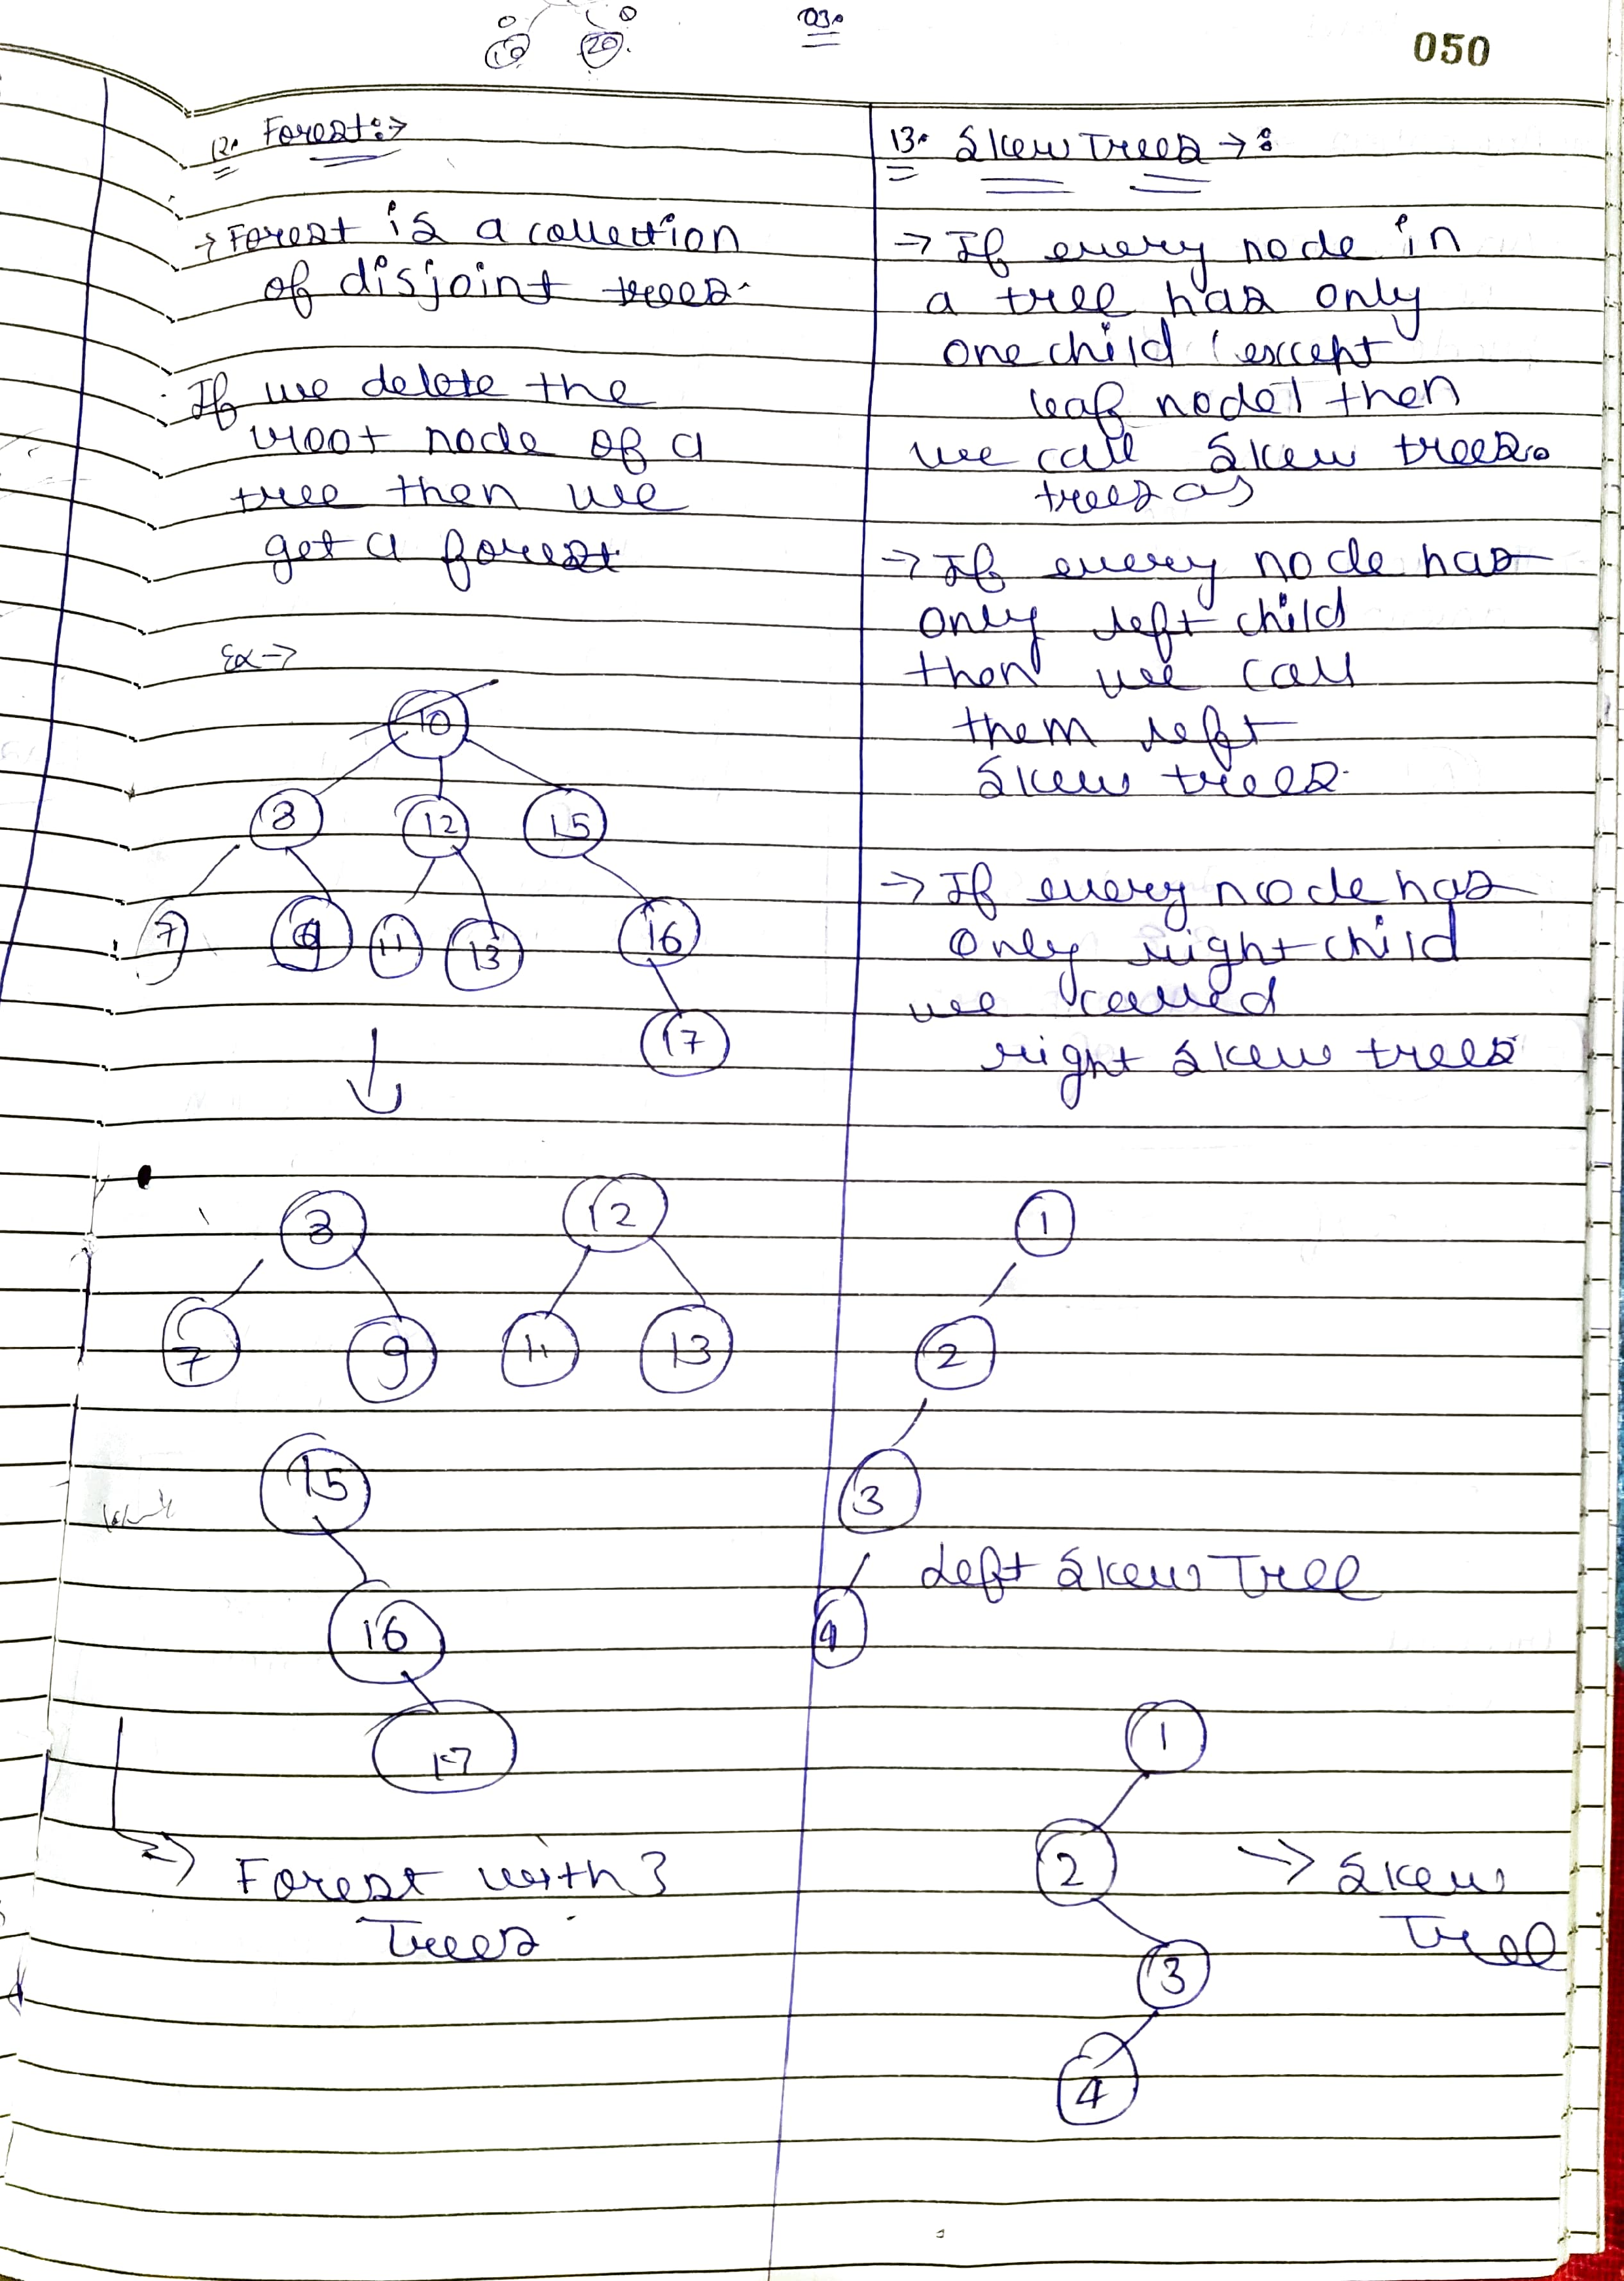 10 20
03.
050
12. Forest:→
→ Forest is a collection
of disjoint trees.
If we delete the
root node of a
tree then we
get a forest
Ex →
10
8 12 15
7 9 11 13 16
17
8 12
7 9 11 13
15
16
17
→ Forest with 3
Trees
13. Skew Trees →:
→ If every node in
a tree has only
one child (except
leaf node) then
we call skew trees.
trees as
→ If every node has
only left child
then we call
them left
skew trees.
→ If every node has
only right child
we called
right skew trees
1
2
3
Left Skew Tree
4
1
2 → Skew
Tree
3
4